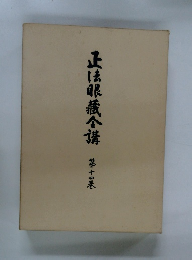 正法眼藏全講
第十一巻